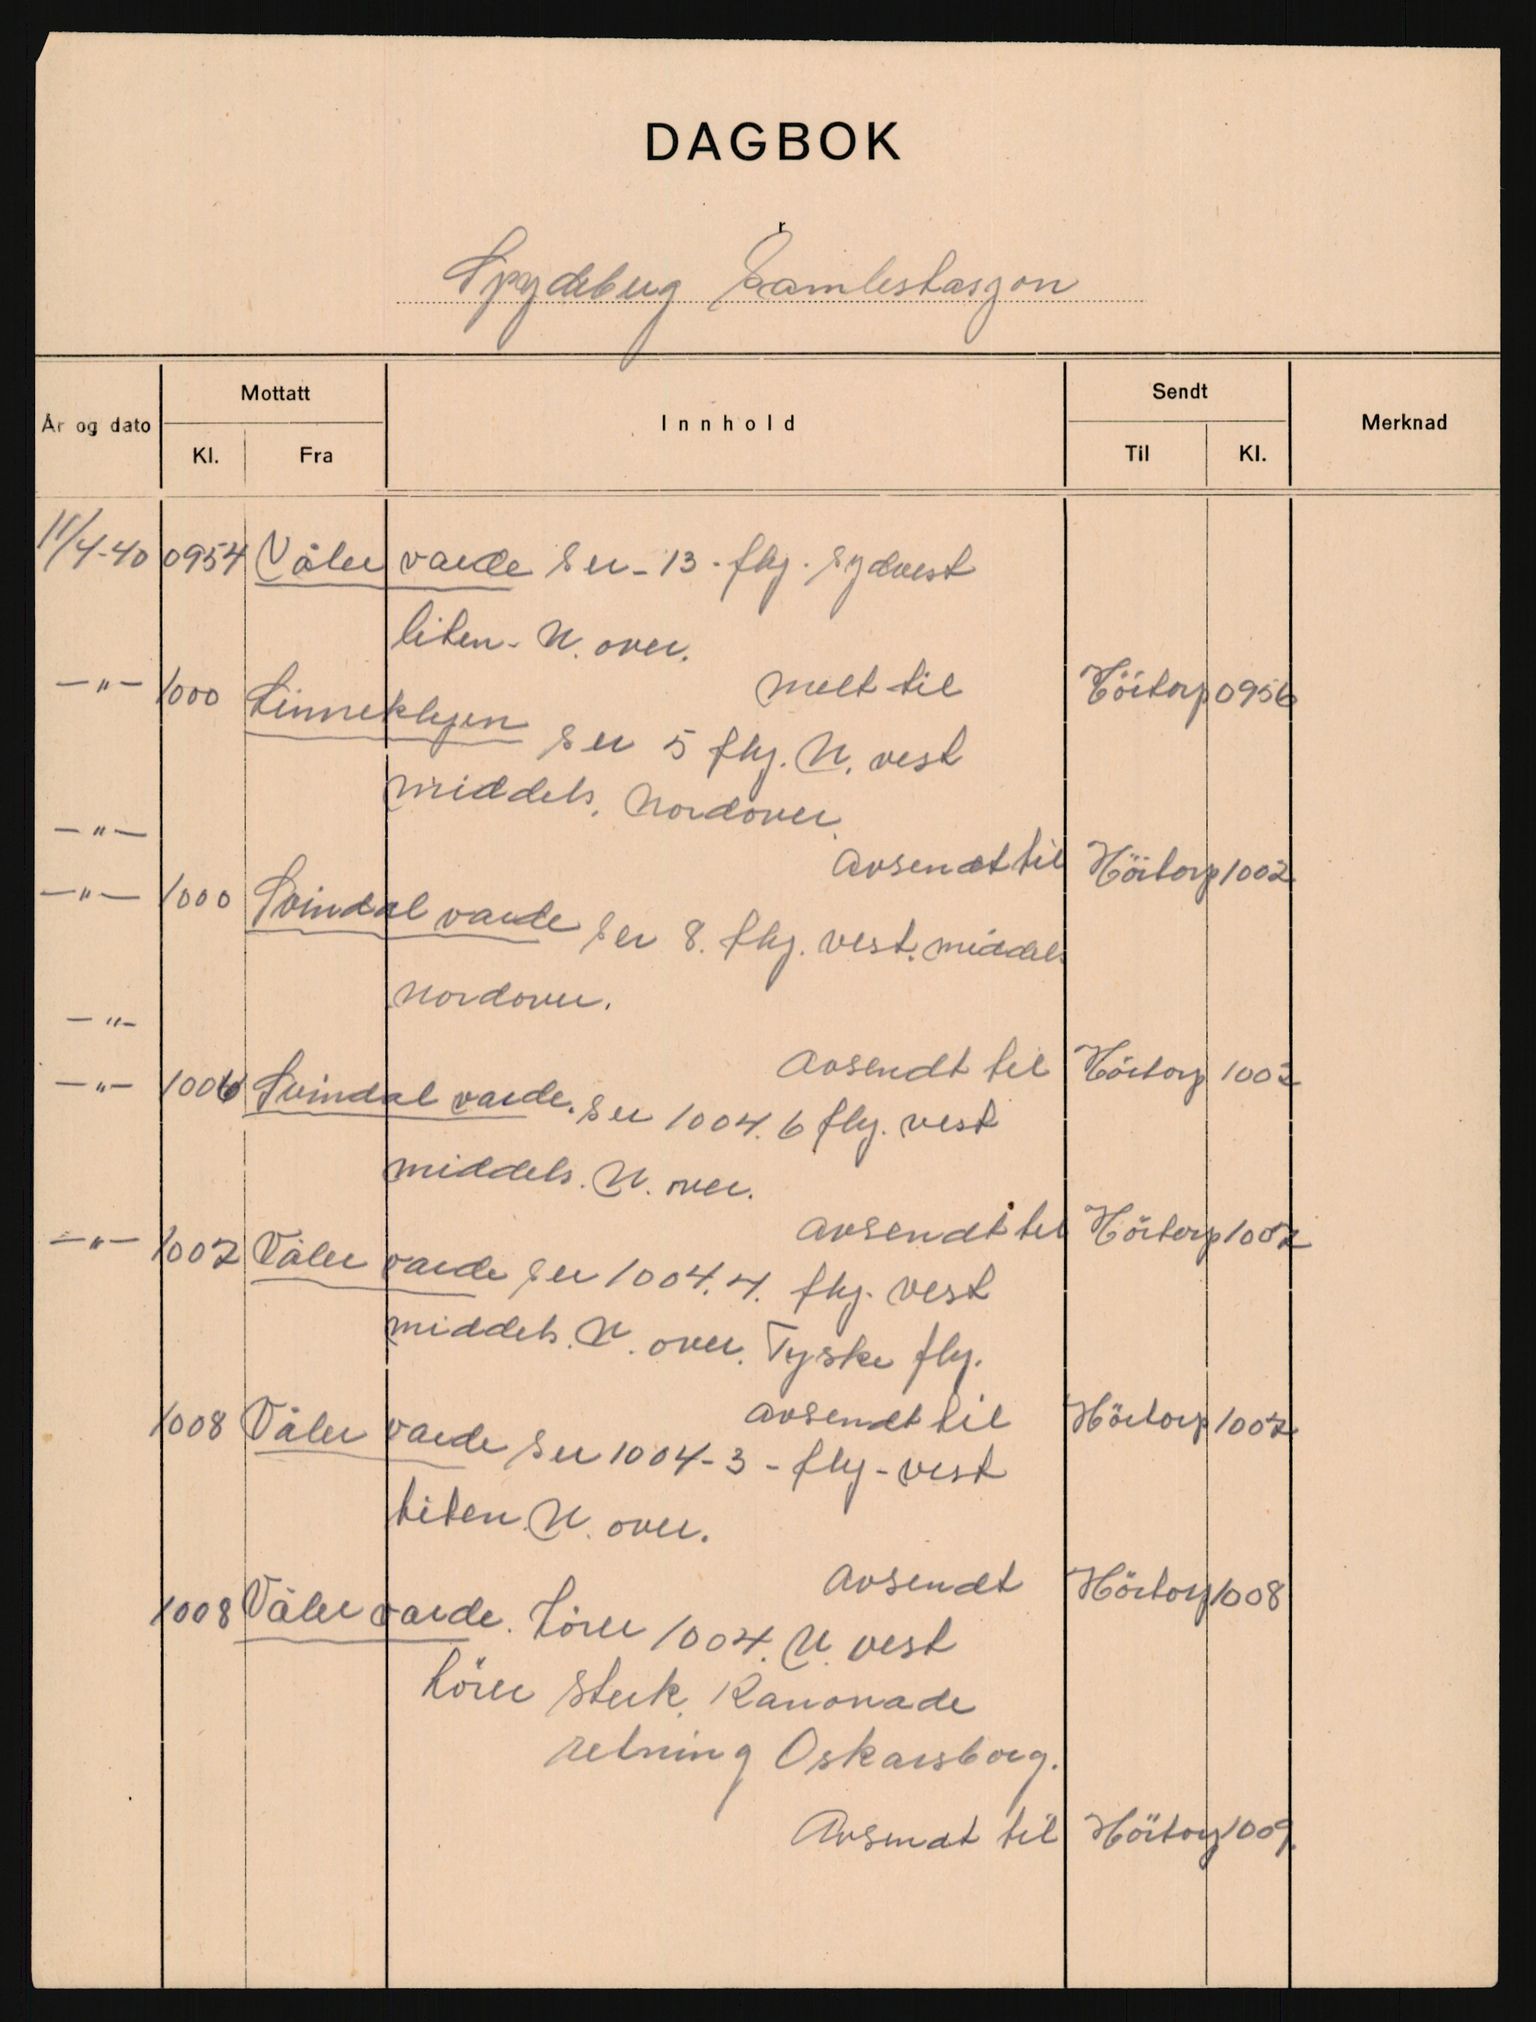 DAGBOK
r
Spydeberg Samlestasjon
År og dato Mottatt Innhold Sendt Merknad
Kl. Fra Til Kl.
11/4-40 0954 Våler varde Ser - 13 - flg. sydvest
liten - N. over.
melt til Höitorp 0956
—"— 1000 Linneklepen ser 5 flg. N. vest
middels. Nordover.
—"— avsendt til Höitorp 1002
—"— 1000 Svindal varde ser 8. flg. vest. middels
nordover.
—"— avsendt til Höitorp 1002
—"— 1006 Svindal varde. ser 1004. 6 flg. vest
middels. N. over.
avsendt til Höitorp 1007
—"— 1007 Våler varde ser 1004. 4. flg. vest
middels. N. over. Tyske flg.
avsendt til Höitorp 1007
1008 Våler varde ser 1004 - 3 - flg - vest
liten. N. over.
avsendt Höitorp 1008
1008 Våler varde. hører 1004. N. vest
hörer sterk. Kanonade
retning Oskarsborg.
Avsendt til Höitorp 1009.